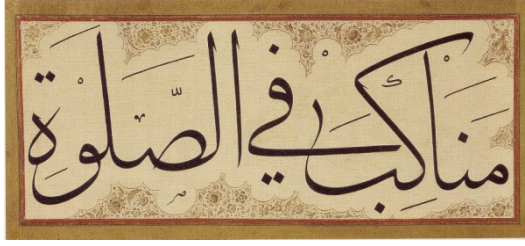 مَنَاكِبَ فِي الصَّلوةِ